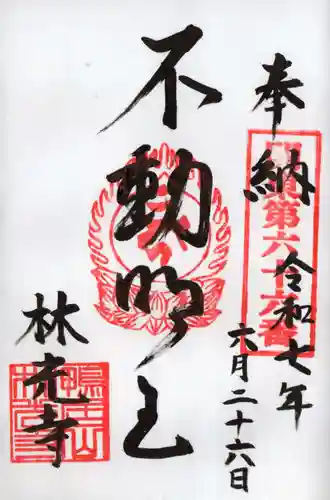 奉納
第六十六番
令和七年
六月二十六日
不動明王
林光寺